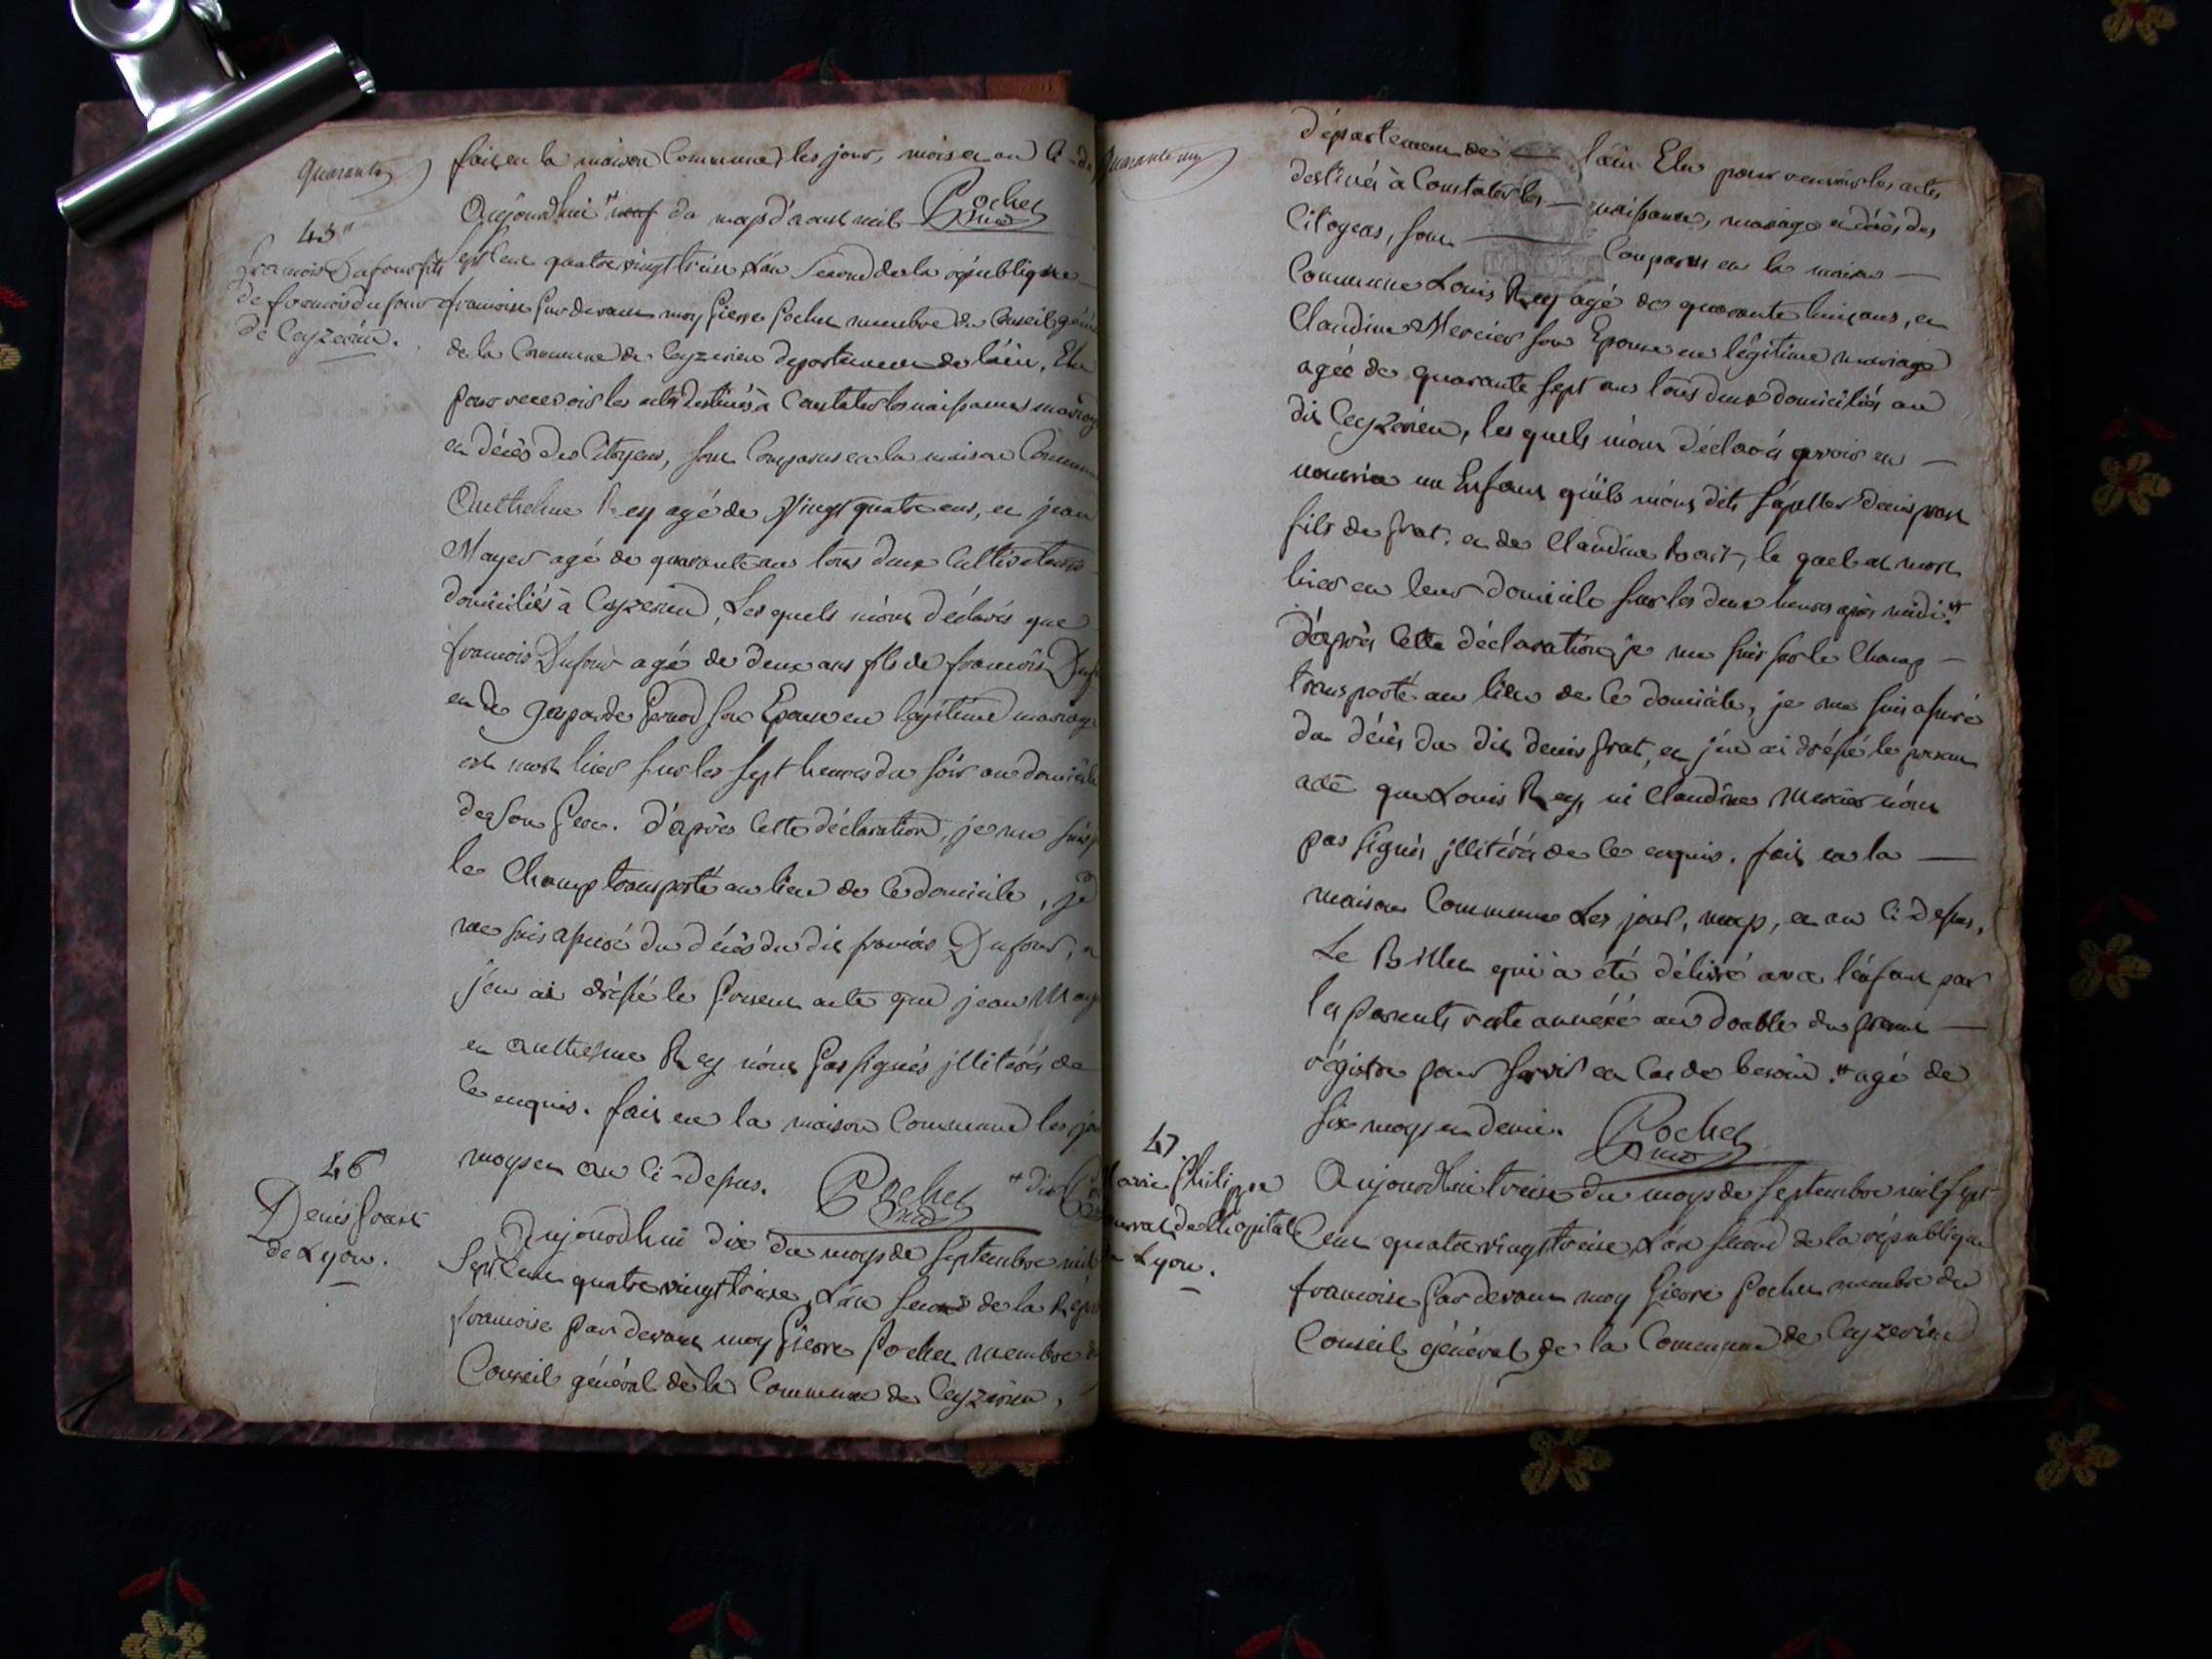 quarante
fait en la maison Commune les jour, mois et an Ci-de
Pochet
45
Aujourdhui neuf du moys d'aout mil
francois Dufour fils
de francois dufour
de Ceyzerieu.
Sept cent quatre vingt treize, L'an Second de la république
francoise Par devant moy Pierre Pochet membre du Conseil géné
de la Commune de Ceyzerieu departement de l'ain, Elu
pour recevoir les actes destinés à Constater les naissances mariag
et décès des Citoyens, sont Comparus en la maison Commune
Anthelme Rey agé de Vingt quatre ans, et jean
Mayer agé de quarante ans tous deux Cultivateurs
domiciliés à Ceyzerieu, Les quels m'ont déclarés que
francois Dufour agé de deux ans fils de francois Duf
et de gasparde Pernod son Epouse en légitime mariage
est mort hier sur les sept heures du soir au domicile
de son Pere. d'après Cette déclaration, je me suis
le Champ transporté au lieu de Ce domicile, je
me suis assuré du décès du dit francois Dufour, et
j'en ai dréssé le Présent acte que jean May
et anthelme Rey n'ont Pas signés jllitérés de
Ce enquis. fait en la maison Commune les jo
moys et an Ci-dessus. Pochet
46
Denis frat
de Lyon.
Aujourdhui dix du moys de Septembre mil
Sept Cent quatre vingt treize, L'an Second de la Répu
francoise Par devant moy Pierre Pochet membre d
Conseil général de la Commune de Ceyzerieu,
quarante un
département de l'ain Elu pour recevoir les actes
destinés à Constater les naissances, mariage et décès des
Citoyens, sont Comparus en la maison
Commune Louis Rey agé de quarante huit ans, et
Claudine Mercier son Epouse en légitime mariage
agée de quarante sept ans tous deux domiciliés au
dit Ceyzérieu, les quels m'ont déclarés avoir en
nourrice un Enfant qu'ils m'ont dits s'apeller Denis frat
fils de frat, et de Claudine la quel est mort
hier en leur domicile sur les deux heures après midi.
d'après Cette déclaration je me suis sur le Champ
transporté au lieu de Ce domicile, je me suis assuré
du décès du dit denis frat, et j'en ai dréssé le présent
acte que Louis Rey, ni Claudine Mercier n'ont
pas signés jllitérés de Ce enquis. fait en la
maison Commune Les jour, moys, et an Ci-dessus,
Le Billet qui a été délivré avec l'enfant par
les Parents reste annéxé au double du présent
régistre pour servir en Cas de besoin. agé de
six moys et demi. Pochet
47.
arie Philippe
de l'hopital
Lyon.
Aujourdhui treize du moys de Septembre mil sept
Cent quatre vingt treize, L'an second de la république
francoise Par devant moy Pierre Pochet membre du
Conseil général de la Commune de Ceyzerieu